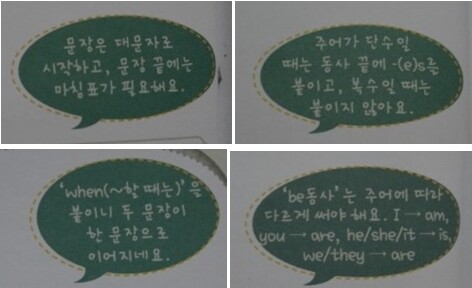 문장은 대문자로
시작하고, 문장 끝에는
마침표가 필요해요.
주어가 단수일
때는 동사 끝에 -(e)s를
붙이고, 복수일 때는
붙이지 않아요.
'when(~할 때는)'을
붙이니 두 문장이
한 문장으로
이어지네요.
'be동사'는 주어에 따라
다르게 써야 해요. I → am,
you → are, he/she/it → is,
we/they → are